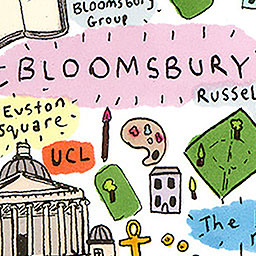 Bloomsbury
Group
BLOOMSBURY
Russel
Euston
Square
UCL
The